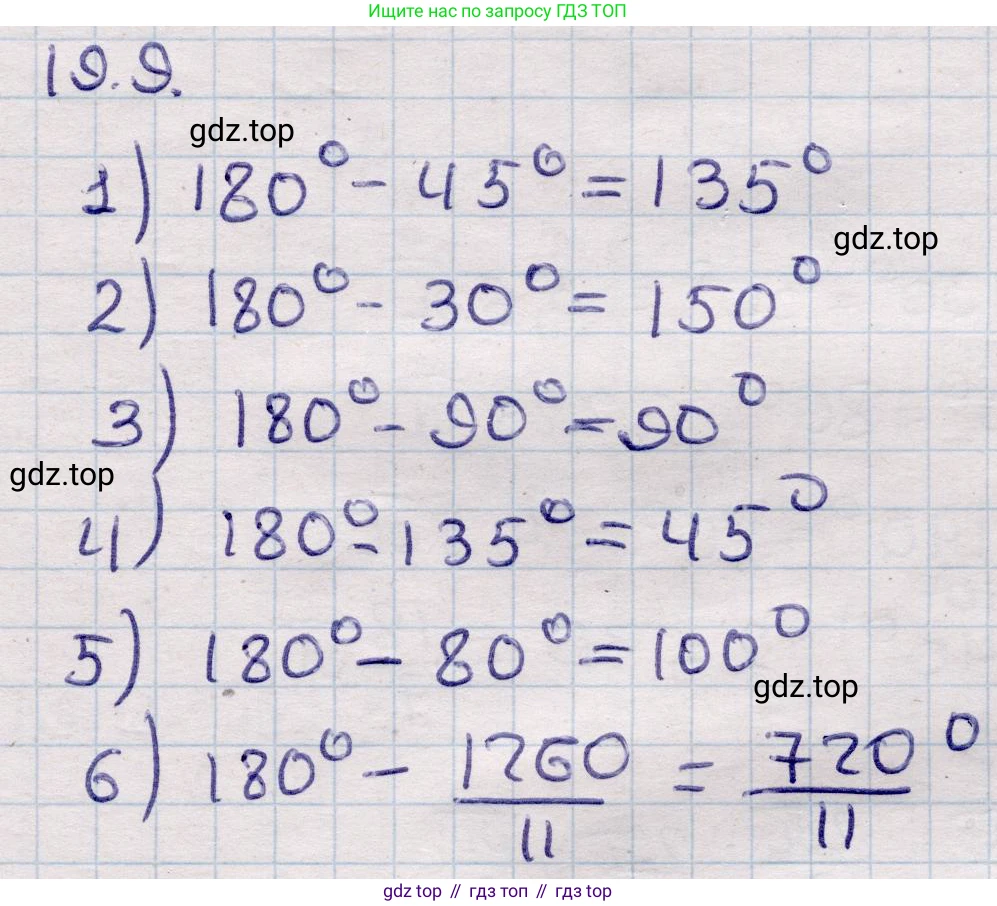 Ищите нас по запросу ГДЗ ТОП
19.9.
gdz.top
1) 180° - 45° = 135°
gdz.top
2) 180° - 30° = 150°
3) 180° - 90° = 90°
gdz.top
4) 180° - 135° = 45°
5) 180° - 80° = 100°
gdz.top
6) 180° - 1260/11 = 720/11°
gdz top // гдз топ // гдз top